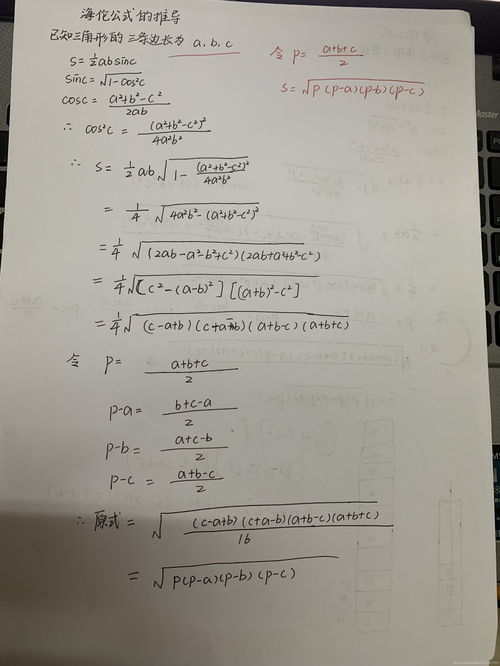 海伦公式的推导
已知三角形的三条边长为 a, b, c
令 p = (a+b+c)/2
S = √(p(p-a)(p-b)(p-c))
S = ½ab sinc
sinc = √(1-cos²c)
cosc = (a²+b²-c²)/2ab
∴ cos²c = (a²+b²-c²)²/4a²b²
∴ S = ½ab√(1-(a²+b²-c²)²/4a²b²)
= ¼√(4a²b²-(a²+b²-c²)²)
= ¼√((2ab-a²-b²+c²)(2ab+a²+b²-c²))
= ¼√([c²-(a-b)²][(a+b)²-c²])
= ¼√((c-a+b)(c+a-b)(a+b-c)(a+b+c))
令 p = (a+b+c)/2
p-a = (b+c-a)/2
p-b = (a+c-b)/2
p-c = (a+b-c)/2
∴ 原式 = √((c-a+b)(c+a-b)(a+b-c)(a+b+c)/16)
= √(p(p-a)(p-b)(p-c))
Master